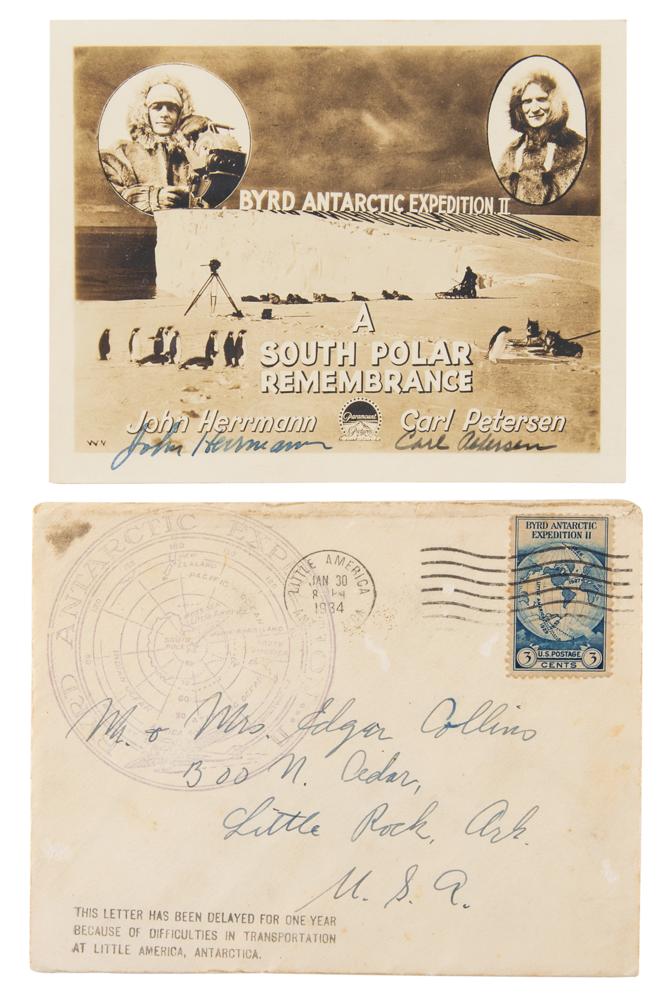 BYRD ANTARCTIC EXPEDITION II
A
SOUTH POLAR
REMEMBRANCE
John Herrmann
Paramount
Carl Petersen
John Herrmann
Carl Petersen
BYRD ANTARCTIC EXPE
LITTLE AMERICA
JAN 30
1934
BYRD ANTARCTIC
EXPEDITION II
3 U.S. POSTAGE 3
CENTS
SOUTH
POLE
Mr. & Mrs. Edgar Collins
300 N. Cedar,
Little Rock, Ark.
U. S. A.
THIS LETTER HAS BEEN DELAYED FOR ONE YEAR
BECAUSE OF DIFFICULTIES IN TRANSPORTATION
AT LITTLE AMERICA, ANTARCTICA.